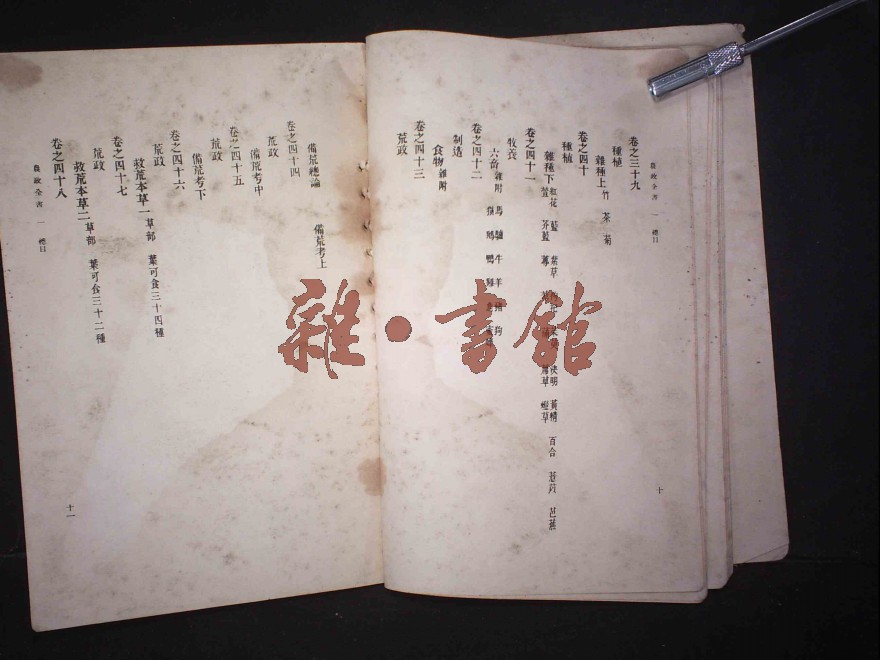 農政全書 一 總目
卷之三十九
種植
雜種上 竹 茶 菊
卷之四十
種植
雜種下 紅花 藍 紫草 決明 黃精 百合 薏苡 芭蕉
萱 芥藍 席草 燈草
卷之四十一
牧養
六畜 雜附 馬 驢 牛 羊 豬 狗
貓 鵝 鴨 雞 魚
卷之四十二
制造
食物 雜附
卷之四十三
荒政
十
備荒總論 備荒考上
卷之四十四
荒政
備荒考中
卷之四十五
荒政
備荒考下
卷之四十六
荒政
救荒本草一 草部 葉可食三十四種
卷之四十七
荒政
救荒本草二 草部 葉可食三十二種
卷之四十八
農政全書 一 總目
十一
雜·書館